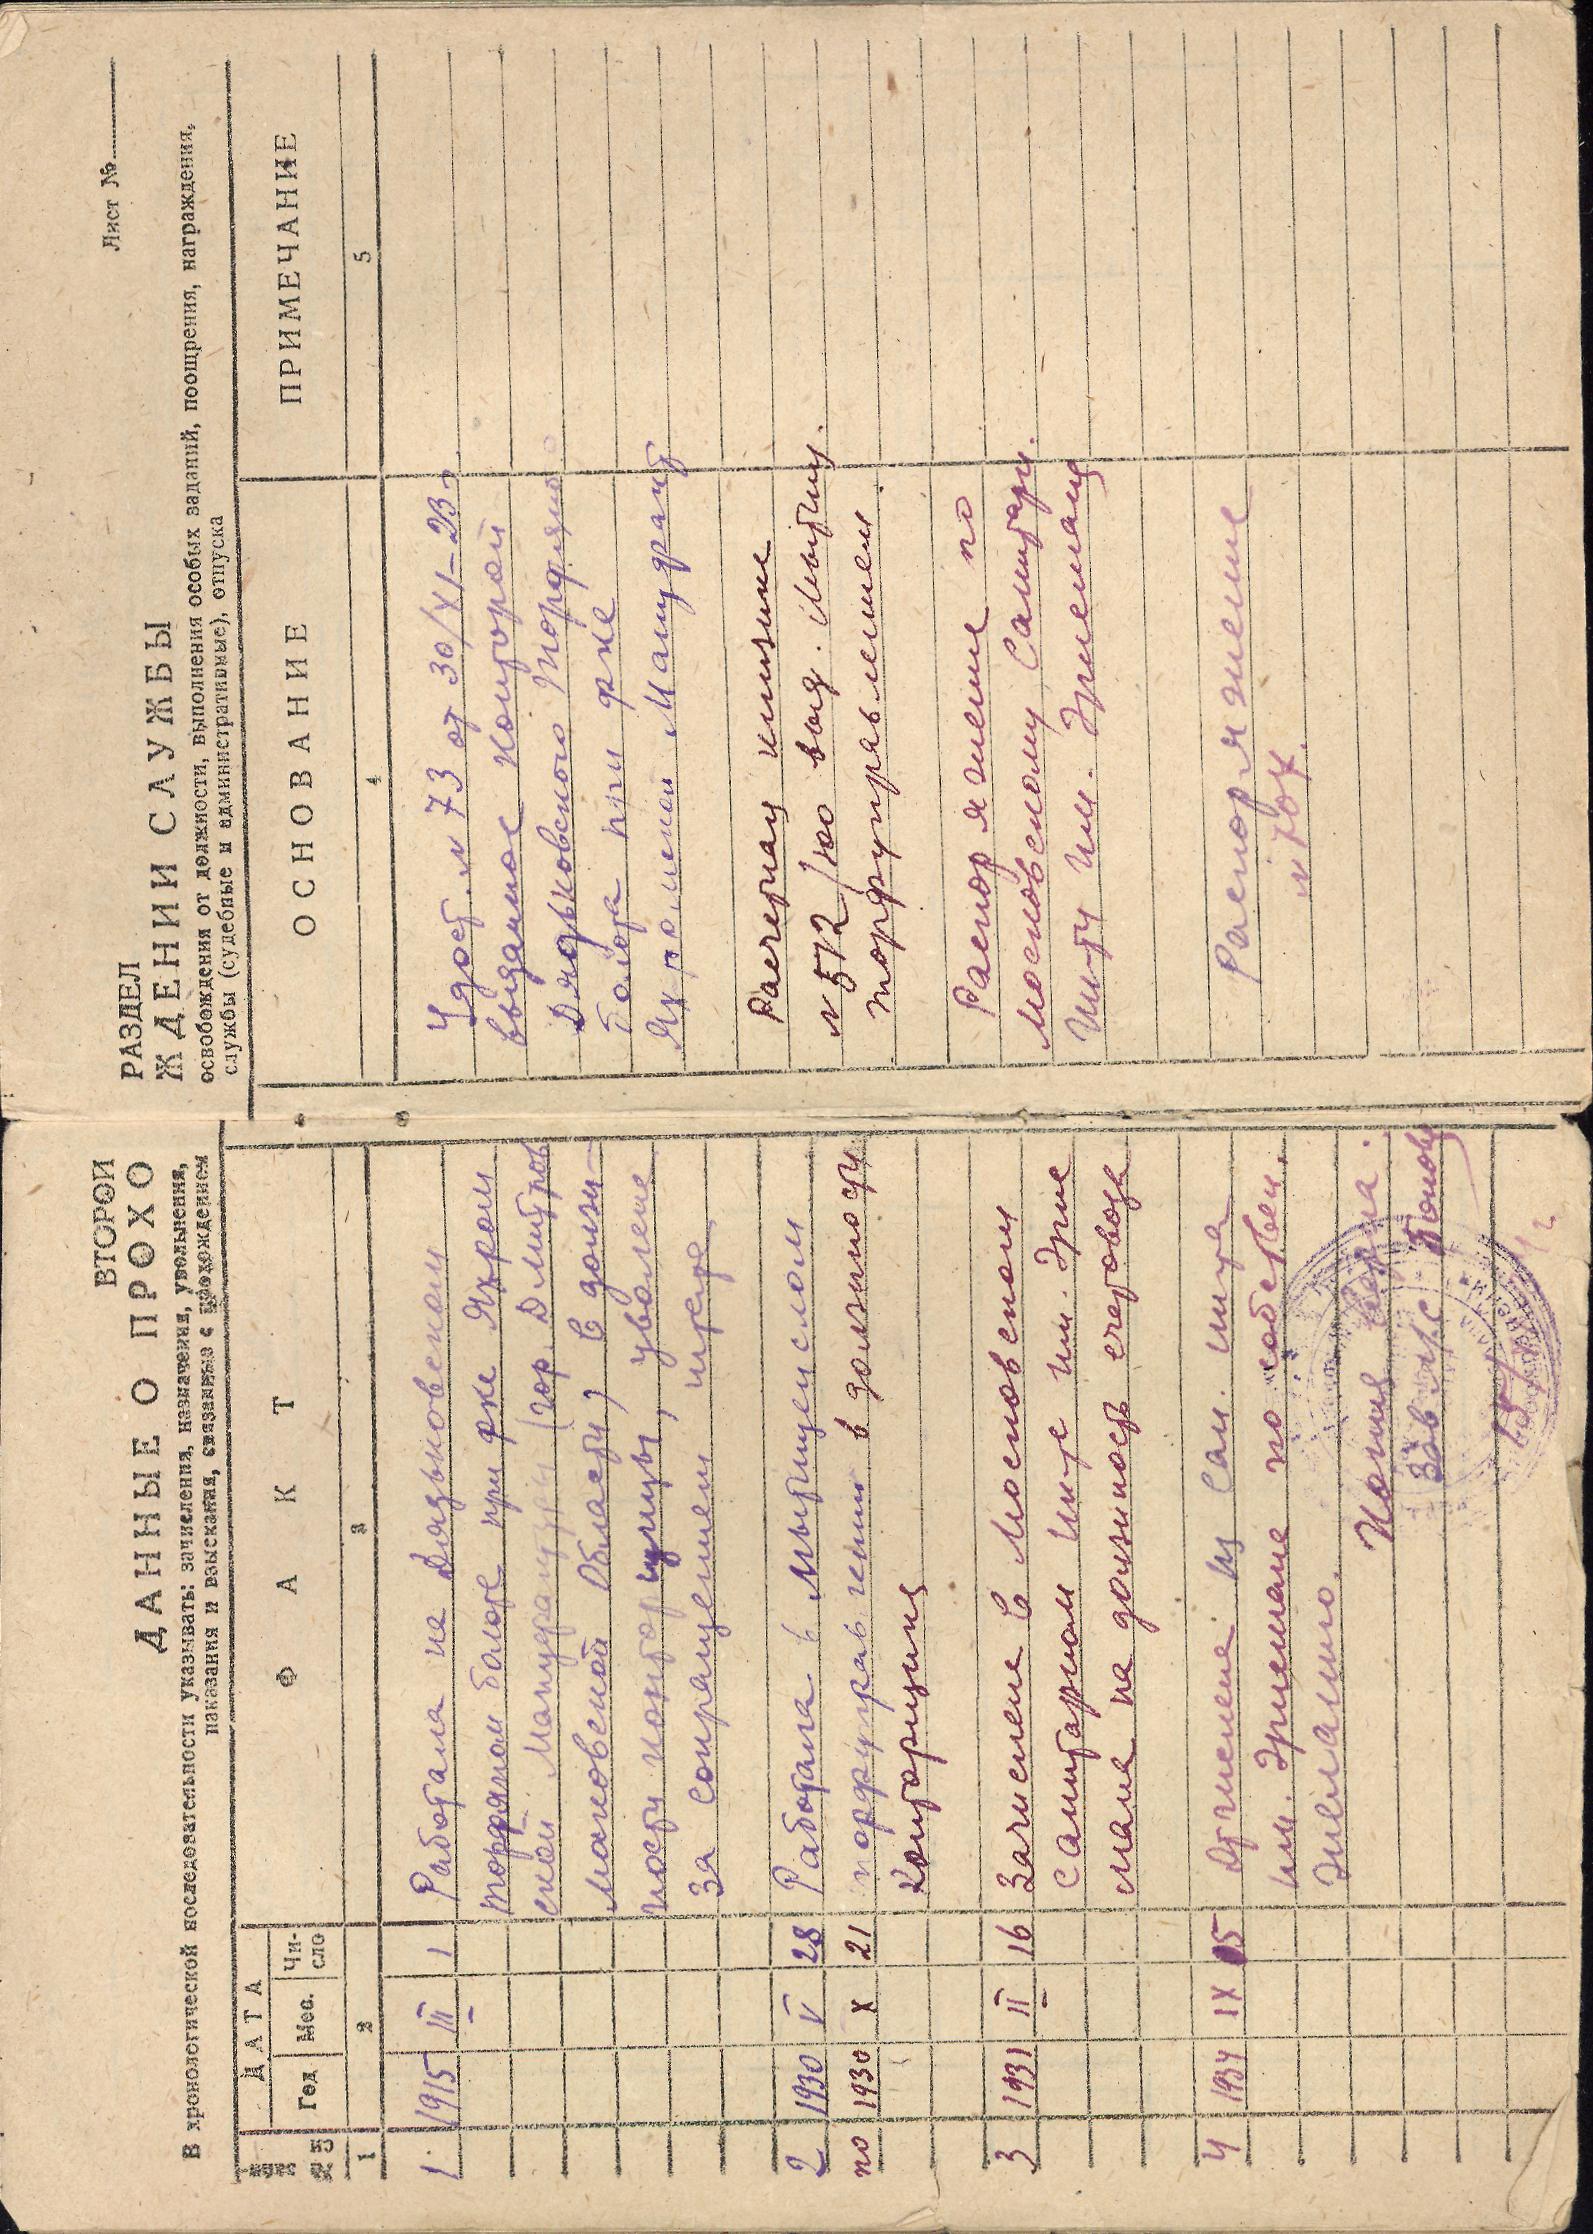 ВТОРОЙ РАЗДЕЛ
ДАННЫЕ О ПРОХОЖДЕНИИ СЛУЖБЫ
Лист №
В хронологической последовательности указывать: зачисления, назначения, увольнения, освобождения от должности, выполнения особых заданий, поощрения, награждения,
наказания и взыскания, связанные с прохождением службы (судебные и административные), отпуска
№№
ДАТА
Год Мес. Чи-
сло
ФАКТ
ОСНОВАНИЕ
ПРИМЕЧАНИЕ
1 2 3 4 5
1. 1915 III 1 Работала на Дядьковском
торфяном болоте при ф-ке Яхром
ской Мануфактуры (гор. Дмитров
Московской Области) в долж-
ности конторщицы, уволена
за сокращением
Удост. № 73 от 30/XI-23
выданное Конторой
Дядьковского Торфяно
болота при ф-ке
Яхромской Мануфакт
2 1930 V 28 Работала в Мытищенском
по 1930 X 21 торфуправлении в должности
Конторщицы
Расчетная книжка
№ 572/ выд. Мытищ.
торфуправлением.
3 1931 II 16 Зачислена в Московском
Санитарном Инст им. Эрис
мана на должность счетовода
Распоряжение по
Московскому Санитарн.
Ин-ту им. Эрисмана
4 1934 IX 15 Отчислена из Сан. инта
им. Эрисмана по собствен.
желанию.
Распоряжение
№
Копия верна.